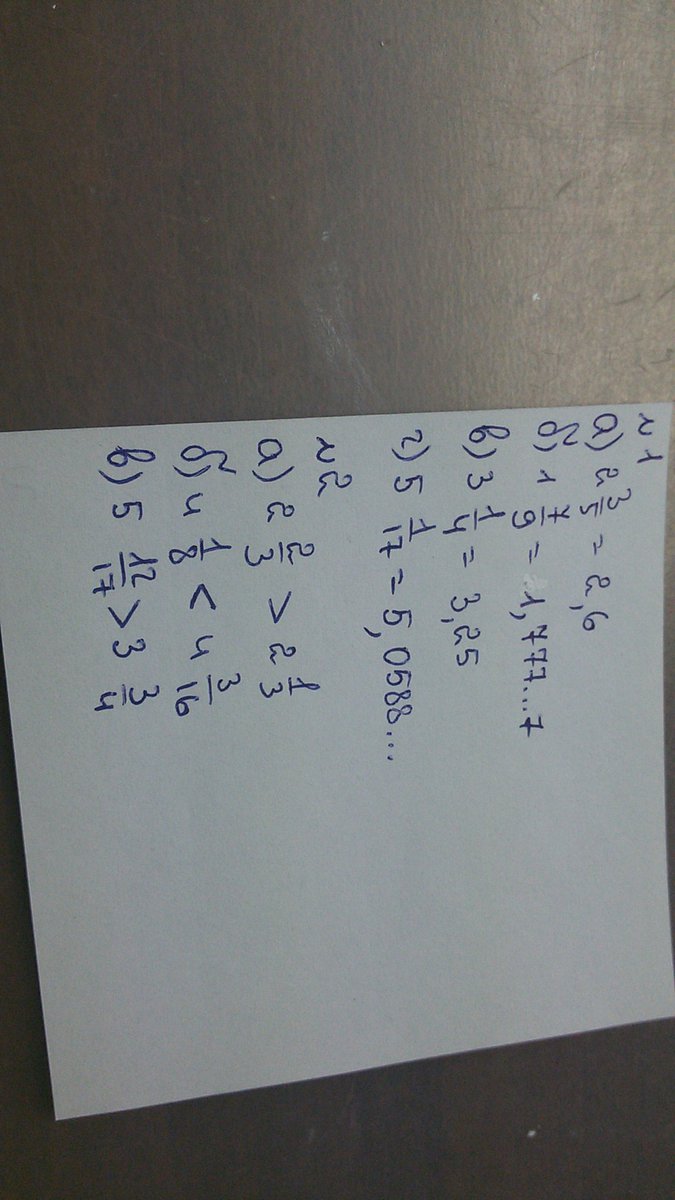 №1
а) 2 3/5 = 2,6
б) 1 7/9 = 1,777...7
в) 3 1/4 = 3,25
г) 5 1/17 = 5,0588...
№2
а) 2 2/3 > 2 1/3
б) 4 1/8 < 4 3/16
в) 5 12/17 > 3 3/4